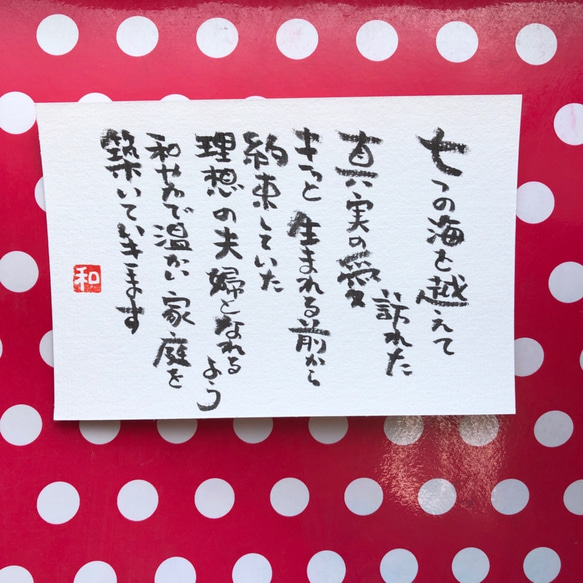 七つの海を越えて
訪れた
真実の愛
きっと生まれる前から
約束していた
理想の夫婦となれるよう
和やかで温かい家庭を
築いていきます
和